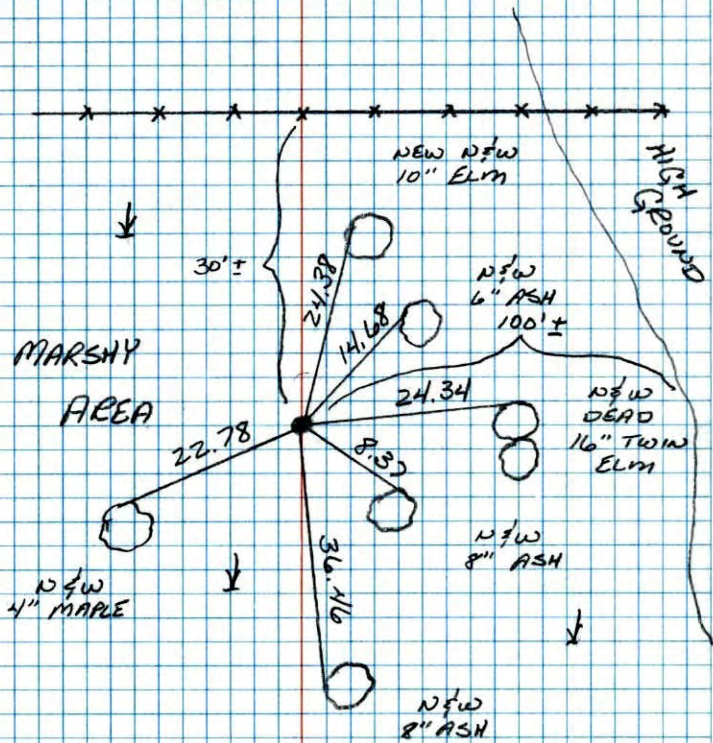 NEW N&W
10" ELM
HIGH
GROUND
30'±
24.38
N&W
6" ASH
100'±
14.68
MARSHY
AREA
24.34
N&W
DEAD
16" TWIN
ELM
22.78
8.37
N&W
8" ASH
36.46
N&W
4" MAPLE
N&W
8" ASH